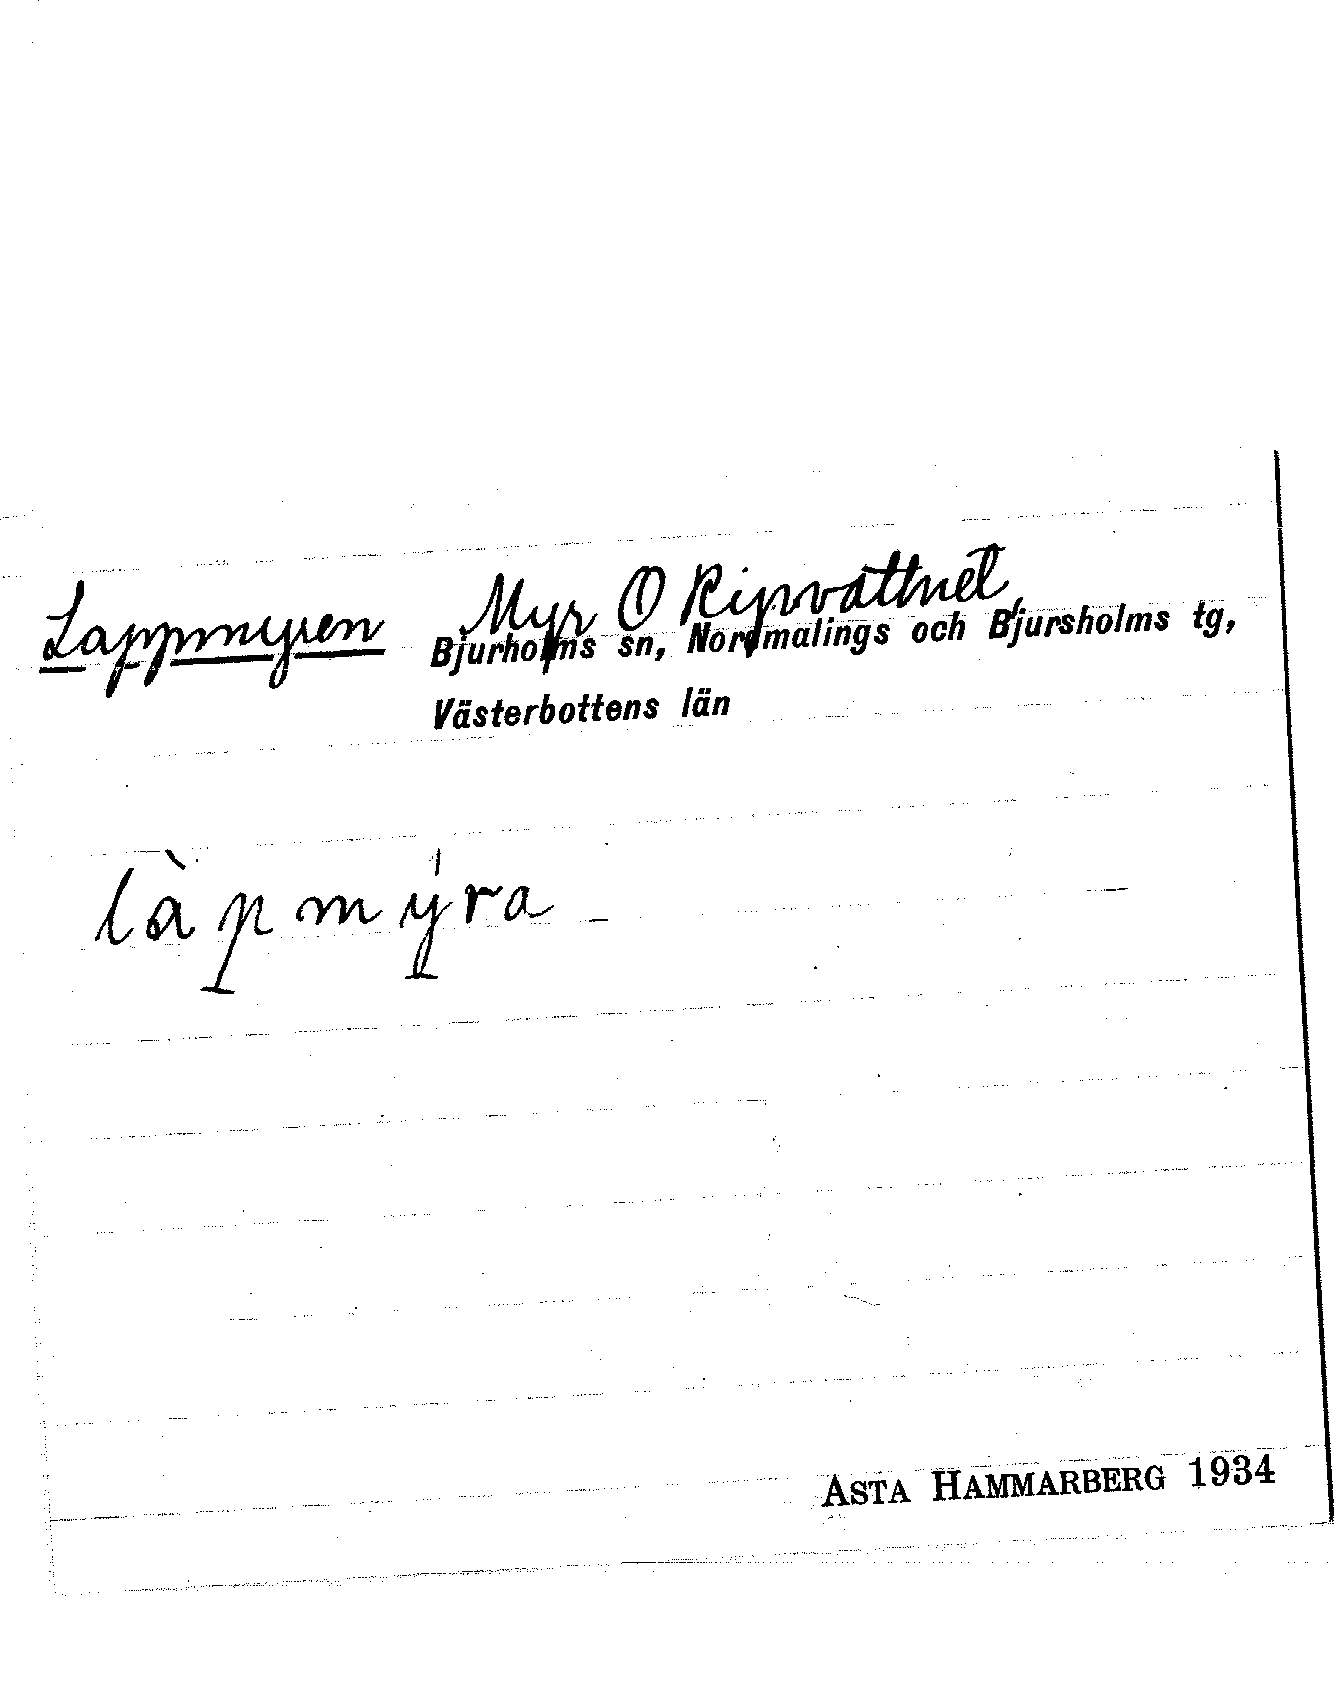 Lappmyren Myr O Ripvattnet
Bjurholms sn, Nordmalings och Bjursholms tg,
Västerbottens län
làpmýra
ASTA HAMMARBERG 1934